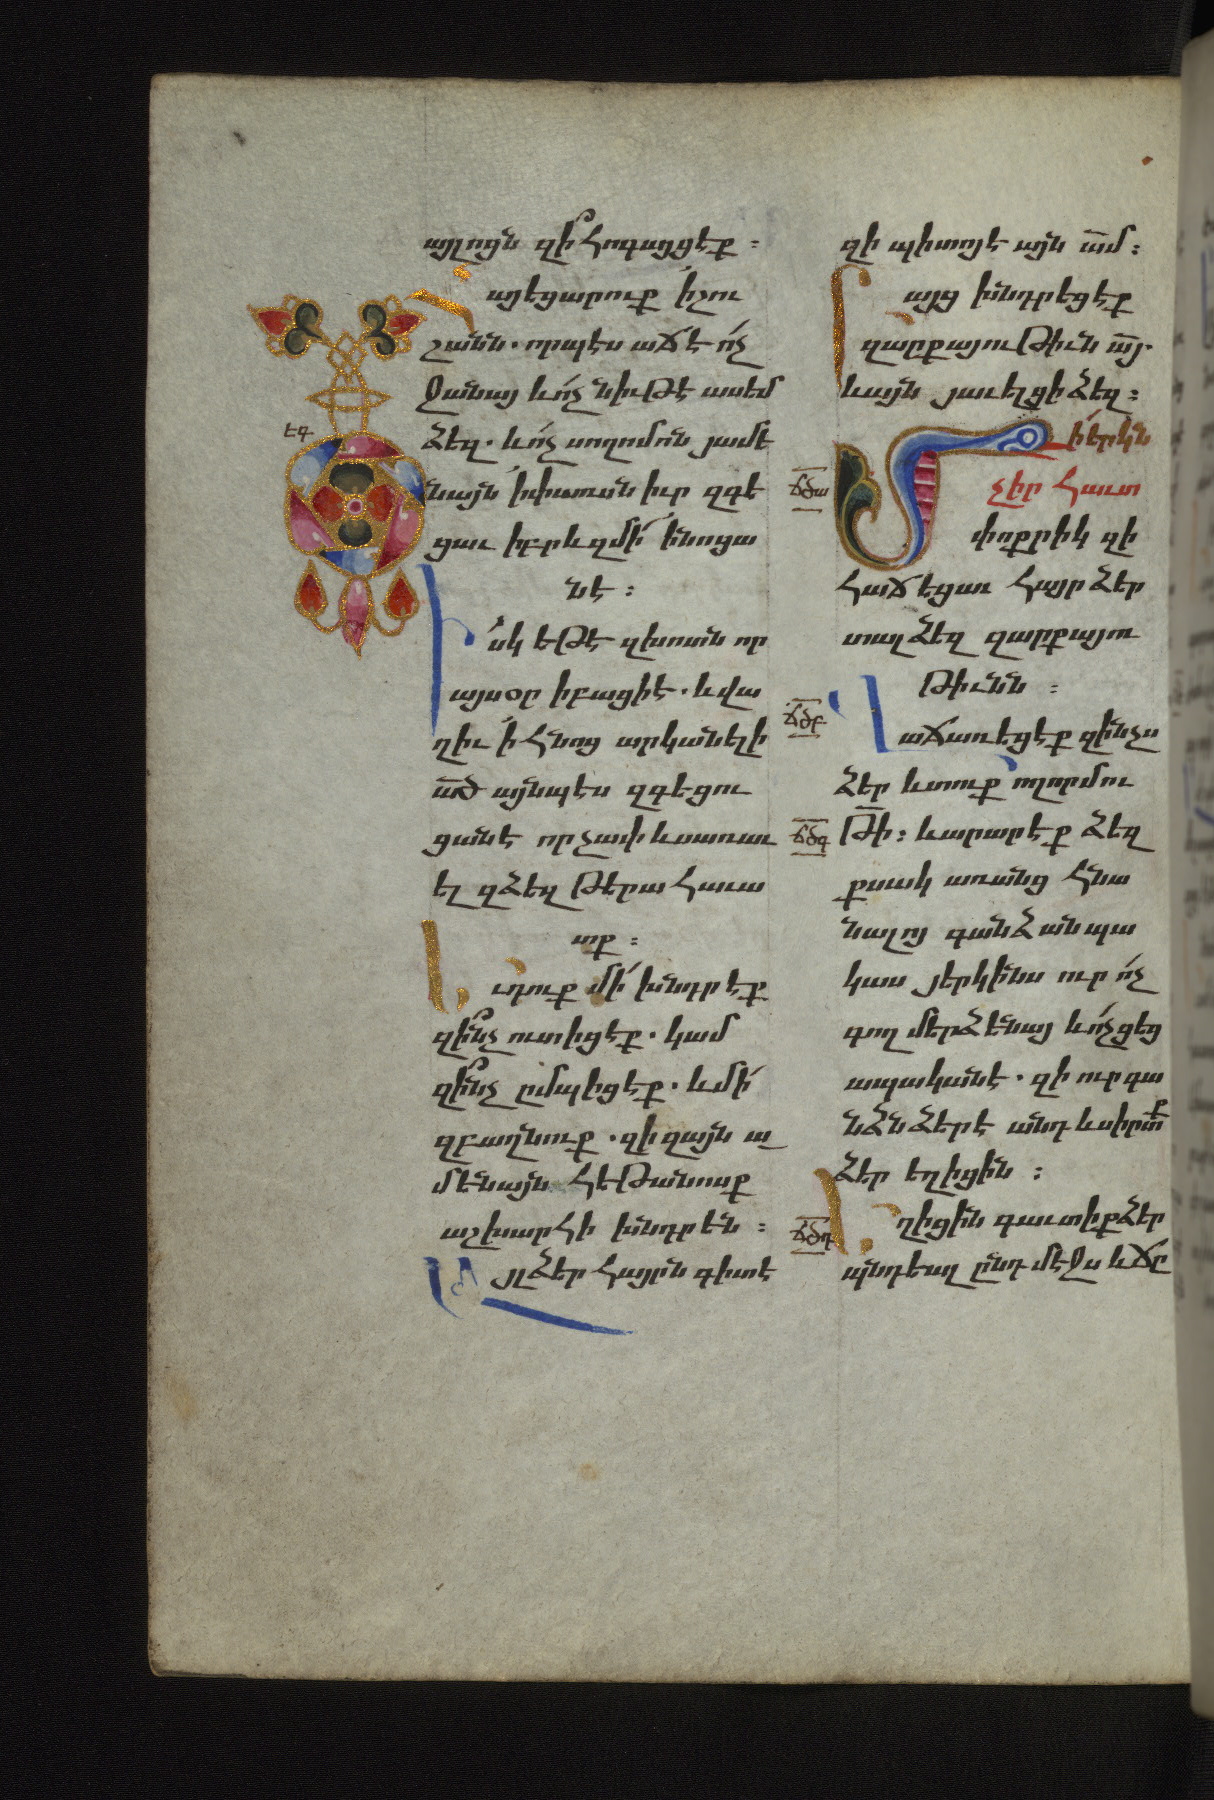 այլոցն զի՞ հոգացցէք ։
Հայեցարուք ի շու
շանն . որպէս աճէ ո՛չ
ջանայ և ո՛չ նիւթէ ասեմ
ձեզ . և ո՛չ սողոմոն յամե
նայն ի փառսն իւր զգե
ցաւ իբրև զմի ի նոցա
նէ ։
Իսկ եթէ զխոտն որ
այսօր ի բացի է . և վա
ղիւ ի հնոց արկանելի
ած այնպէս զգեցու
ցանէ որչափ ևս առաւ
ել զձեզ թերահաւա
տք ։
Եւ դուք մի՛ խնդրէք
զի՞նչ ուտիցէք . կամ
զի՞նչ ըմպիցէք . և մի՛
զբաղնուք . զի զայն ա
մենայն հեթանոսք
աշխարհի խնդրեն ։
Այլ ձեր հայրն գիտէ
զի պիտոյ է այն ամ ։
Բայց խնդրեցէք
զարքայութիւն այ
և այն յաւելցի ձեզ ։
Մի երկն
չիր հաւտ
փոքրիկ զի
հաճեցաւ հայր ձեր
տալ ձեզ զարքայու
թիւնն ։
Վաճառեցէք զինչս
ձեր և տուք ողորմու
թի ։ և արարէք ձեզ
քսակ առանց հնա
նալոյ գանձ անպա
կաս յերկինս ուր ո՛չ
գող մերձենայ և ո՛չ ցեց
ապականէ . զի ուր գա
նձն ձեր է անդ և սիրտք
ձեր եղիցին ։
Եղիցին գաւտիք ձեր
պնդեալ ընդ մէջս և ճր
ԷԳ
ՃԾԱ
ՃԾԲ
ՃԾԳ
ՃԾԴ